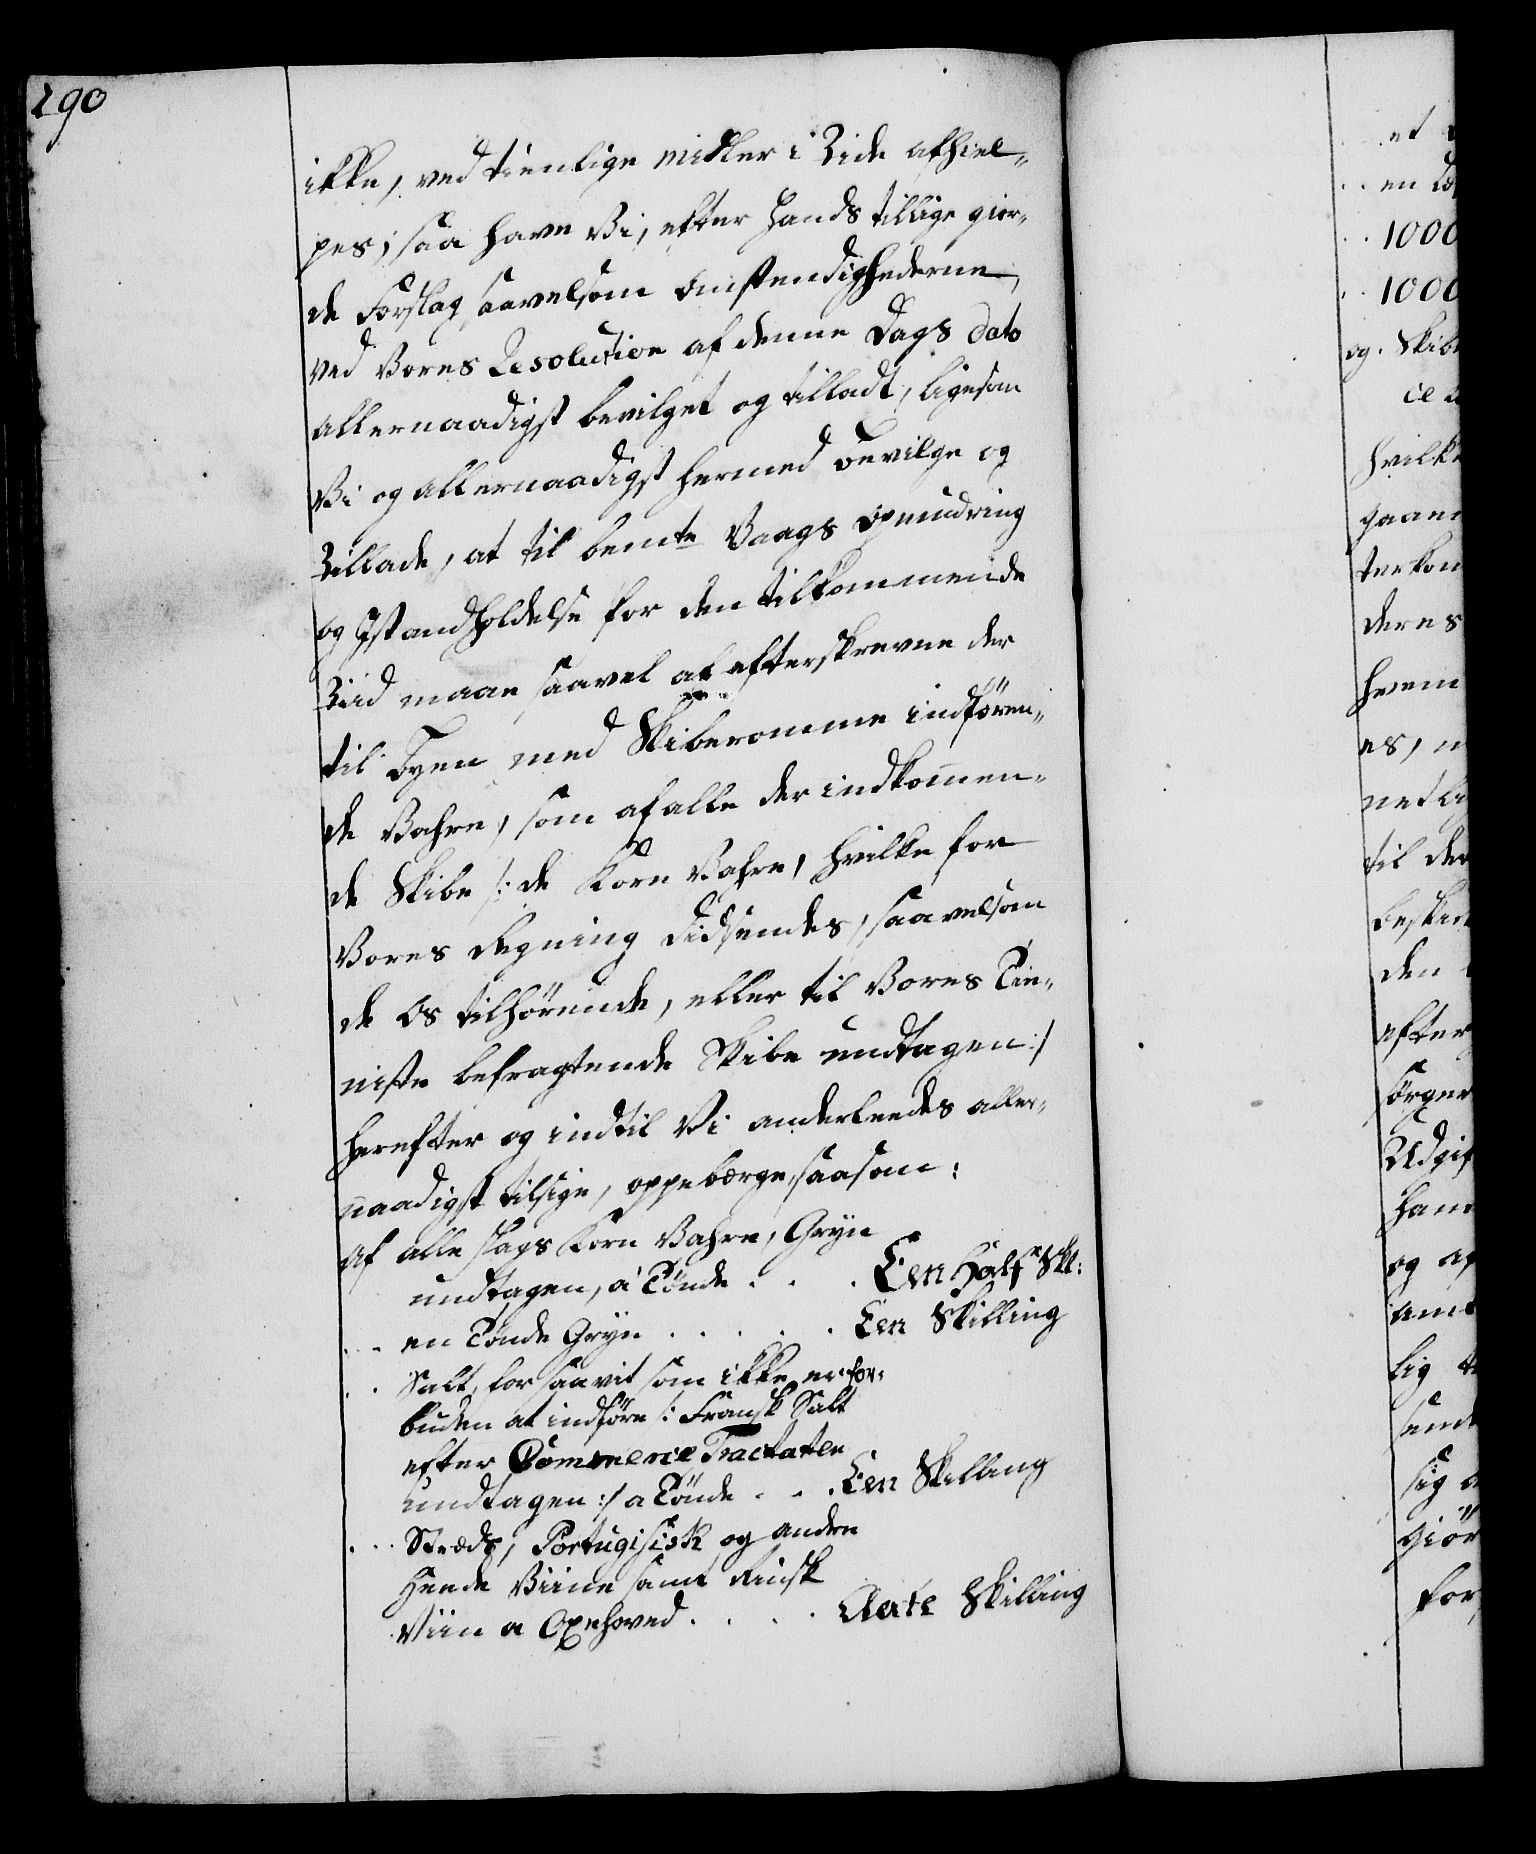 290
ikke, ved tienlige midler i Tide afhiel-
pes; saa have Vi, efter hands tillige gior-
de Forslag saavelsom Omstendighederne,
ved Vores Resolution af denne Dags Dato
allernaadigst bevilget og tilladt, ligesom
Vi og allernaadigst hermed bevilge og
Tillade, at til bemte Vaags Opmudring
og Istandholdelse for den tilkommende
Tiid maae saavel af efterskrevne der
til Byen med Skiberomme indføren-
de Vahre, som af alle der indkommen-
de Skibe /: de Korn Vahre, hvilke for
Vores Regning didsendes, saavelsom
de Os tilhørende, eller til Vores Tie-
niste befragtende Skibe undtagen :/
herefter og indtil Vi anderleedes aller-
naadigst tilsige, oppebærge, saasom:
Af alle slags Korn Vahre, Gryn
undtagen, á Tønde . . . Een Half Skl:
. . - en Tønde Gryn . . . . . Een Skilling
. . Salt, for saavit som ikke er for-
buden at indføre /: Fransk Salt
efter Commerce Tractaten
undtagen :/ a Tønde . . . Een Skilling
. . . Stræds, Portugisisk og andre
heede Viine samt Rinsk
Viin a Oxehoved . . . . Aate Skilling
et
. . en
. . 1000
. . 1000
og. Skib
ce
hvilke
gaaen
terkom
deres
hvem
es,
net
til der
beskie
den
efter
sørger
Udgif
han
og af
am
lig
sende
sig
giør
for